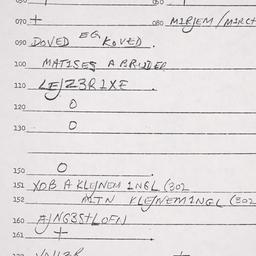 070 +
080 MIRJEM/MIRCH
090 DOVED EG KOVED.
100 MATISES A BRUDER
110 LEJZ3RIXE
120 0
130 0
150 0
151 XOB A KLEJNEM INGL (302
152 MIN KLEJNEM INGL (302
160 AJNGESTLOFN
161 +